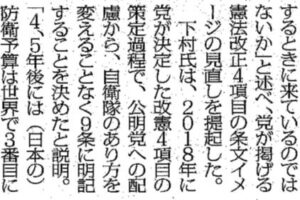 するときに来ているのでは
ないか」と述べ、党が掲げる
憲法改正4項目の条文イメ
ージの見直しを提起した。
下村氏は、2018年に
党が決定した改憲4項目の
策定過程で、公明党への配
慮から、自衛隊のあり方を
変えることなく9条に明記
することを決めたと説明。
「4、5年後には(日本の)
防衛予算は世界で3番目に